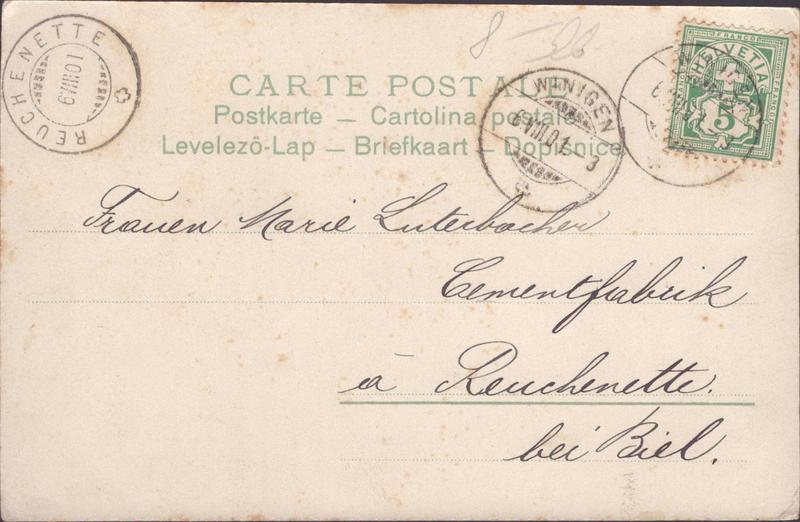 REUCHENETTE
6 VIII 01
8
CARTE POSTALE
Postkarte — Cartolina postale
Levelező-Lap — Briefkaart — Dopisnice
WYNIGEN
6 VIII 01 - 3
HELVETIA
FRANCO
5
Frauen Marie Luterbacher
Cementfabrik
à Reuchenette.
bei Biel.